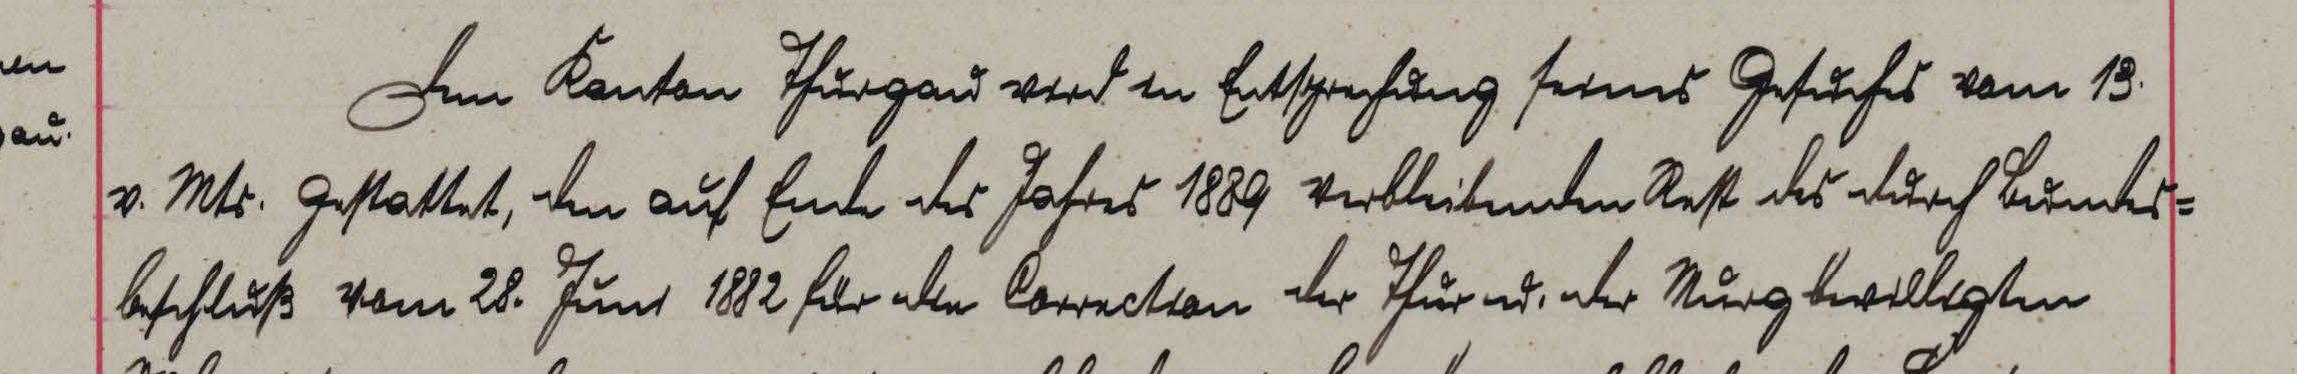 Dem Kanton Thurgau wird in Entsprechung seines Gesuches vom 13.
v. Mts. gestattet, den auf Ende des Jahres 1889 verbleibenden Rest des durch Bundes=
beschluß vom 28. Juni 1882 für die Correction der Thur u. der Murg bewilligten